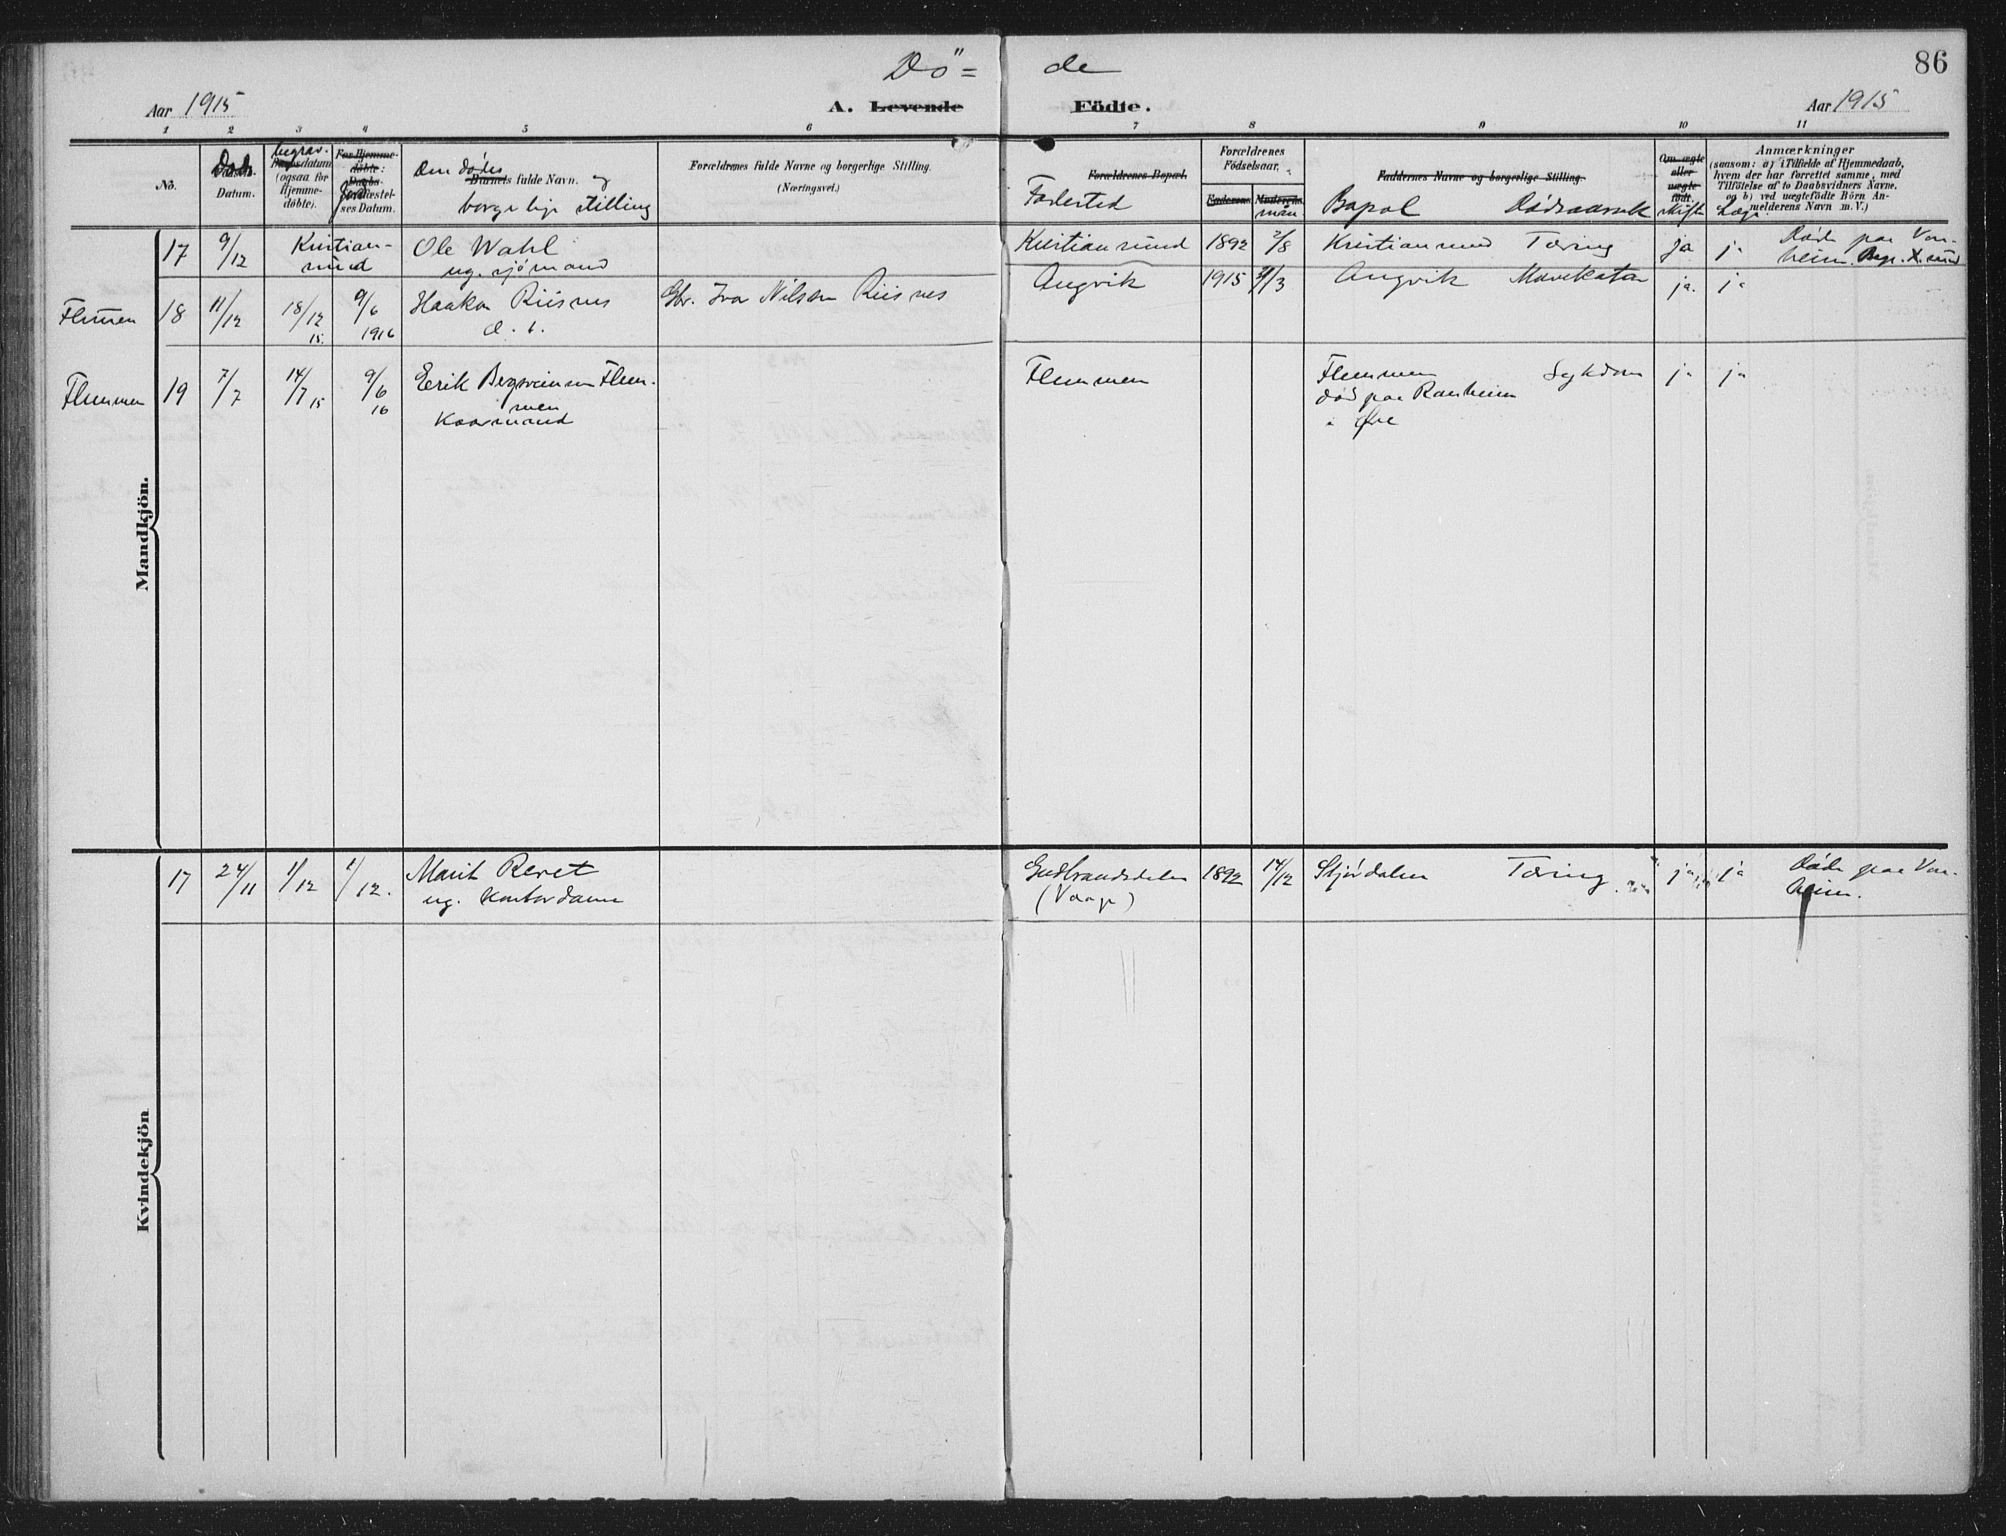 Dö= de
86
Aar 1915
A. Levende Födte.
Aar 1915
1 2 3 4 5 6 7 8 9 10 11
No.
Datum.
begrav.
Daabsdatum
(ogsaa for
Hjemme-
døbte).
For Hjemme-
døbte:
Daabs-
Jord
ses Datum.
Den dødes
Barnets fulde Navn. og
borgerlige stilling
Forældrenes fulde Navne og borgerlige Stilling.
(Næringsvei.)
Forældrenes Bopæl.
Fødested
Forældrenes
Fødselsaar.
Faderens Moderens
Faddernes Navne og borgerlige Stilling
Bopæl Dødsaarsak
Om ægte
eller
uægte
født.
skifte
Læge
Anmærkninger
(saasom: a) i Tilfælde af Hjemmedaab,
hvem der har forrettet samme, med
Tilføielse af to Daabsvidners Navne.
og b) ved uægtefödte Börn An-
melderens Navn m. V.)
Mandkjön.
17 9/12 Kristian-
sund
Ole Wahl
ug. sjömand
Kristiansund 1892 2/8 Kristiansund Tæring ja ja Døde paa Von-
heim. Begr. X.sund
18 11/12 18/12 15. 9/6 1916
Haakon Riisnes
Gbr. Ivar Nilsen Riisnes
Angvik 1915 Angvik Mavekatar ja. ja
Flemmen 19 7/7 14/7 15 9/6 16
Erik Bergsveinsen Flem-
men
Kaarmand
Flemmen Flemmen Sykdom ja ja
død paa Ranheim
i Øre
Kvindekjön
17 24/11 1/12 1/12.
Marit Revet
ug. Kontordame
Gudbrandsdalen 1892 14/12 Stjørdalen Tæring ja ja Døde paa Von-
(Vaage) heim.